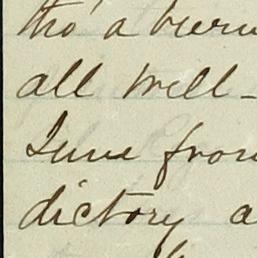 tho' a
all well -
June from
dictory a